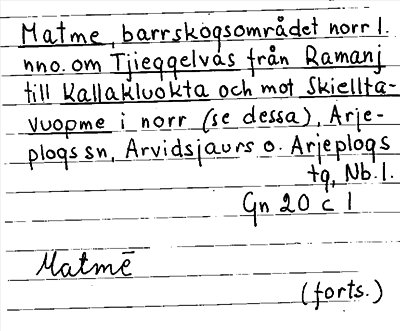 Matme, barrskogsområdet norr l.
nno. om Tjieggelvas från Ramanj
till Kallakluokta och mot Skiellta-
vuopme i norr (se dessa), Arje-
plogs sn, Arvidsjaurs o. Arjeplogs
tg, Nb. l.
Gn 20 c 1
Matmē
(forts.)